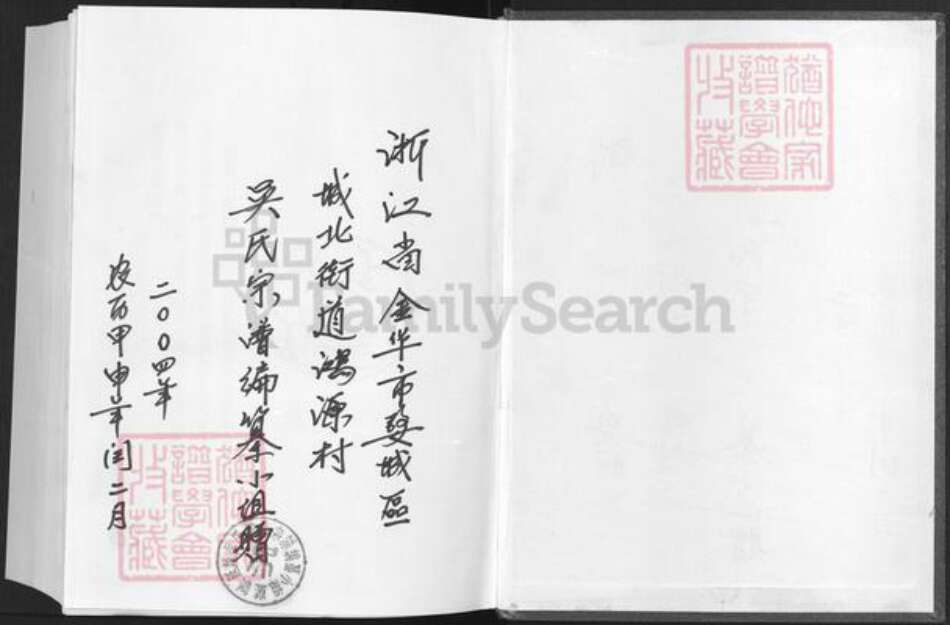 浙江省金华市婺城區
城北街道鴻源村
吴氏宗譜编纂小组贈
二〇〇四年
农历甲申年闰二月
猶他家
譜學會
收藏
猶他家
譜學會
收藏
FamilySearch